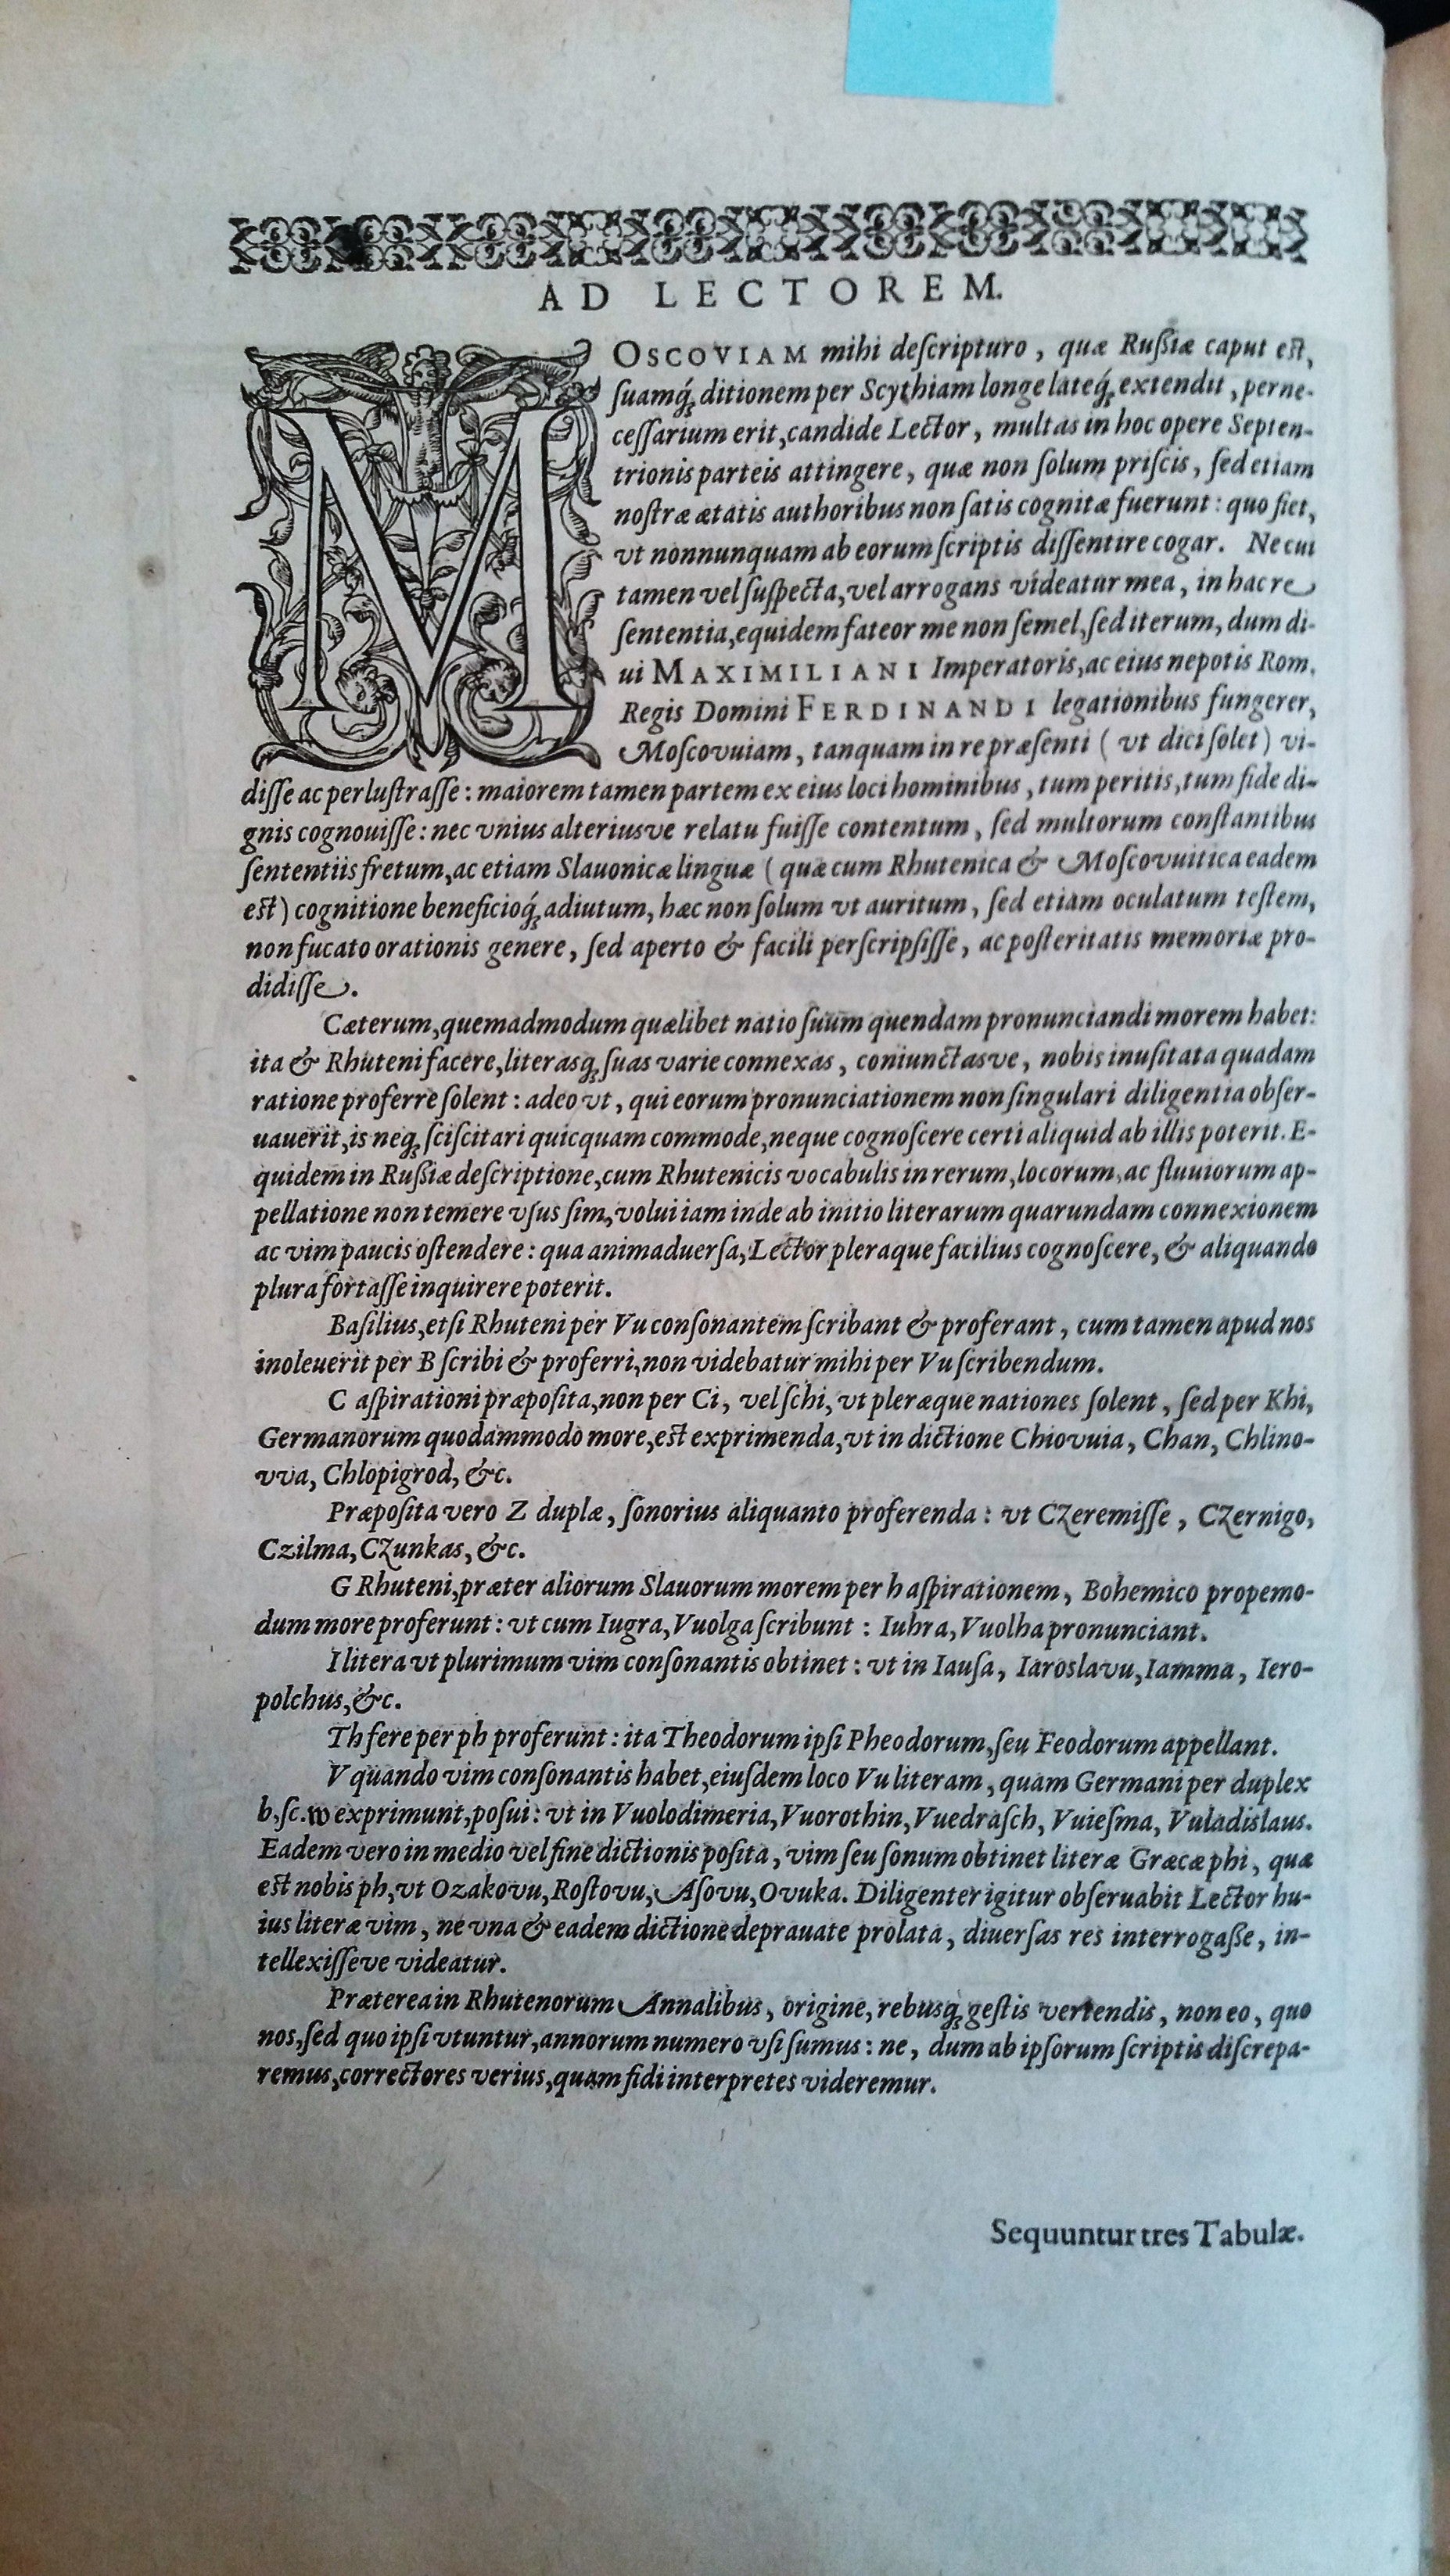 AD LECTOREM.
MOSCOVIAM mihi deſcripturo, quæ Ruſsiæ caput est,
ſuamq́; ditionem per Scythiam longe lateq́; extendit, perne-
ceſſarium erit, candide Lector, multas in hoc opere Septen-
trionis parteis attingere, quæ non ſolum priſcis, ſed etiam
noſtræ ætatis authoribus non ſatis cognitæ fuerunt: quo fiet,
vt nonnunquam ab eorum ſcriptis diſſentire cogar. Ne cui
tamen vel ſuſpecta, vel arrogans videatur mea, in hac re
ſententia, equidem fateor me non ſemel, ſed iterum, dum di-
ui MAXIMILIANI Imperatoris, ac eius nepotis Rom.
Regis Domini FERDINANDI legationibus fungerer,
Moſcovuiam, tanquam in re præſenti ( vt dici ſolet ) vi-
diſſe ac perluſtraſſe: maiorem tamen partem ex eius loci hominibus, tum peritis, tum fide di-
gnis cognouiſſe: nec vnius alteriusve relatu fuiſſe contentum, ſed multorum conſtantibus
ſententiis fretum, ac etiam Slauonicæ linguæ ( quæ cum Rhutenica & Moſcovuitica eadem
est ) cognitione beneficioq́; adiutum, hæc non ſolum vt auritum, ſed etiam oculatum teſtem,
non fucato orationis genere, ſed aperto & facili perſcripſiſſe, ac poſteritatis memoriæ pro-
didiſſe.
Cæterum, quemadmodum quælibet natio ſuum quendam pronunciandi morem habet:
ita & Rhuteni facere, literasq; ſuas varie connexas, coniunctasve, nobis inuſitata quadam
ratione proferre ſolent: adeo vt, qui eorum pronunciationem non ſingulari diligentia obſer-
uauerit, is neq; ſciſcitari quicquam commode, neque cognoſcere certi aliquid ab illis poterit. E-
quidem in Ruſsiæ deſcriptione, cum Rhutenicis vocabulis in rerum, locorum, ac fluuiorum ap-
pellatione non temere vſus ſim, volui iam inde ab initio literarum quarundam connexionem
ac vim paucis oſtendere: qua animaduerſa, Lector pleraque facilius cognoſcere, & aliquando
plura fortaſſe inquirere poterit.
Baſilius, etſi Rhuteni per Vu conſonantem ſcribant & proferant, cum tamen apud nos
inoleuerit per B ſcribi & proferri, non videbatur mihi per Vu ſcribendum.
C aſpirationi præpoſita, non per Ci, vel ſchi, vt pleræque nationes ſolent, ſed per Khi,
Germanorum quodammodo more, est exprimenda, vt in dictione Chiovuia, Chan, Chlino-
vva, Chlopigrod, &c.
Præpoſita vero Z duplæ, ſonorius aliquanto proferenda: vt Czeremiſſe, Czernigo,
Czilma, Czunkas, &c.
G Rhuteni, præter aliorum Slauorum morem per h aſpirationem, Bohemico propemo-
dum more proferunt: vt cum Iugra, Vuolga ſcribunt: Iuhra, Vuolha pronunciant.
I litera vt plurimum vim conſonantis obtinet: vt in Iauſa, Iaroslavu, Iamma, Iero-
polchus, &c.
Th fere per ph proferunt: ita Theodorum ipſi Pheodorum, ſeu Feodorum appellant.
V quando vim conſonantis habet, eiuſdem loco Vu literam, quam Germani per duplex
b, ſc. w exprimunt, poſui: vt in Vuolodimeria, Vuorothin, Vuedraſch, Vuieſma, Vuladislaus.
Eadem vero in medio vel fine dictionis poſita, vim ſeu ſonum obtinet literæ Græcæ phi, quæ
est nobis ph, vt Ozakovu, Roſtovu, Aſovu, Ovuka. Diligenter igitur obſeruabit Lector hu-
ius literæ vim, ne vna & eadem dictione deprauate prolata, diuerſas res interrogaſſe, in-
tellexiſſeve videatur.
Præterea in Rhutenorum Annalibus, origine, rebusq; geſtis vertendis, non eo, quo
nos, ſed quo ipſi vtuntur, annorum numero vſi ſumus: ne, dum ab ipſorum ſcriptis diſcrepa-
remus, correctores verius, quam fidi interpretes videremur.
Sequuntur tres Tabulæ.